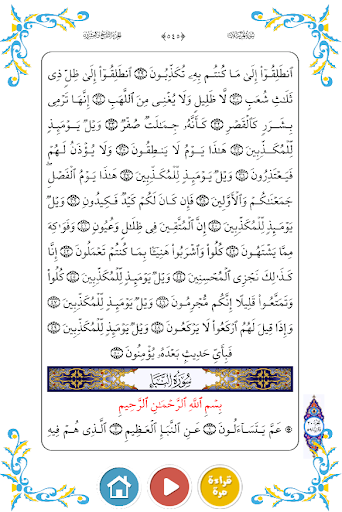 سورة المرسلات ﴿٥٤٥﴾ الجزء التاسع والعشرون
ٱنطَلِقُوٓا۟ إِلَىٰ مَا كُنتُم بِهِۦ تُكَذِّبُونَ ۝ ٱنطَلِقُوٓا۟ إِلَىٰ ظِلٍّ ذِى
ثَلَٰثِ شُعَبٍ ۝ لَّا ظَلِيلٍ وَلَا يُغْنِى مِنَ ٱللَّهَبِ ۝ إِنَّهَا تَرْمِى
بِشَرَرٍ كَٱلْقَصْرِ ۝ كَأَنَّهُۥ جِمَٰلَتٌ صُفْرٌ ۝ وَيْلٌ يَوْمَئِذٍ
لِّلْمُكَذِّبِينَ ۝ هَٰذَا يَوْمُ لَا يَنطِقُونَ ۝ وَلَا يُؤْذَنُ لَهُمْ
فَيَعْتَذِرُونَ ۝ وَيْلٌ يَوْمَئِذٍ لِّلْمُكَذِّبِينَ ۝ هَٰذَا يَوْمُ ٱلْفَصْلِ
جَمَعْنَٰكُمْ وَٱلْأَوَّلِينَ ۝ فَإِن كَانَ لَكُمْ كَيْدٌ فَكِيدُونِ ۝ وَيْلٌ
يَوْمَئِذٍ لِّلْمُكَذِّبِينَ ۝ إِنَّ ٱلْمُتَّقِينَ فِى ظِلَٰلٍ وَعُيُونٍ ۝ وَفَوَٰكِهَ
مِمَّا يَشْتَهُونَ ۝ كُلُوا۟ وَٱشْرَبُوا۟ هَنِيٓـًٔۢا بِمَا كُنتُمْ تَعْمَلُونَ ۝ إِنَّا
كَذَٰلِكَ نَجْزِى ٱلْمُحْسِنِينَ ۝ وَيْلٌ يَوْمَئِذٍ لِّلْمُكَذِّبِينَ ۝ كُلُوا۟
وَتَمَتَّعُوا۟ قَلِيلًا إِنَّكُم مُّجْرِمُونَ ۝ وَيْلٌ يَوْمَئِذٍ لِّلْمُكَذِّبِينَ ۝
وَإِذَا قِيلَ لَهُمُ ٱرْكَعُوا۟ لَا يَرْكَعُونَ ۝ وَيْلٌ يَوْمَئِذٍ لِّلْمُكَذِّبِينَ ۝
فَبِأَىِّ حَدِيثٍۭ بَعْدَهُۥ يُؤْمِنُونَ ۝
سُورَةُ النَّبَإِ
بِسْمِ ٱللَّهِ ٱلرَّحْمَٰنِ ٱلرَّحِيمِ
عَمَّ يَتَسَآءَلُونَ ۝ عَنِ ٱلنَّبَإِ ٱلْعَظِيمِ ۝ ٱلَّذِى هُمْ فِيهِ
قراءة
مرة